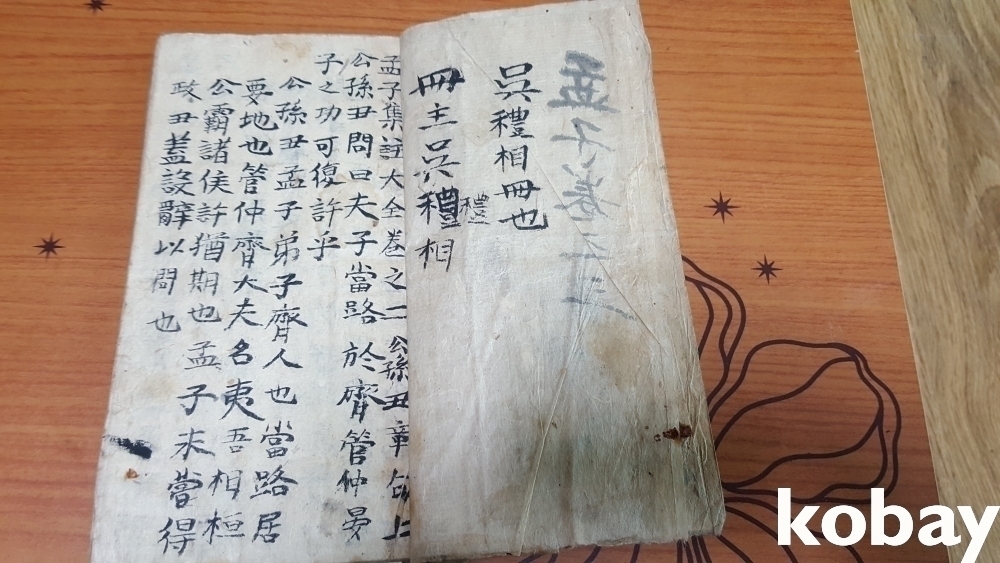 吳禮相冊也
冊主吳禮相
禮
孟子集註大全卷之二 公孫丑章句上
公孫丑問曰夫子當路於齊管仲晏
子之功可復許乎
公孫丑孟子弟子齊人也當路居
要地也管仲齊大夫名夷吾相桓
公霸諸侯許猶期也孟子未嘗得
政丑蓋設辭以問也
kobay